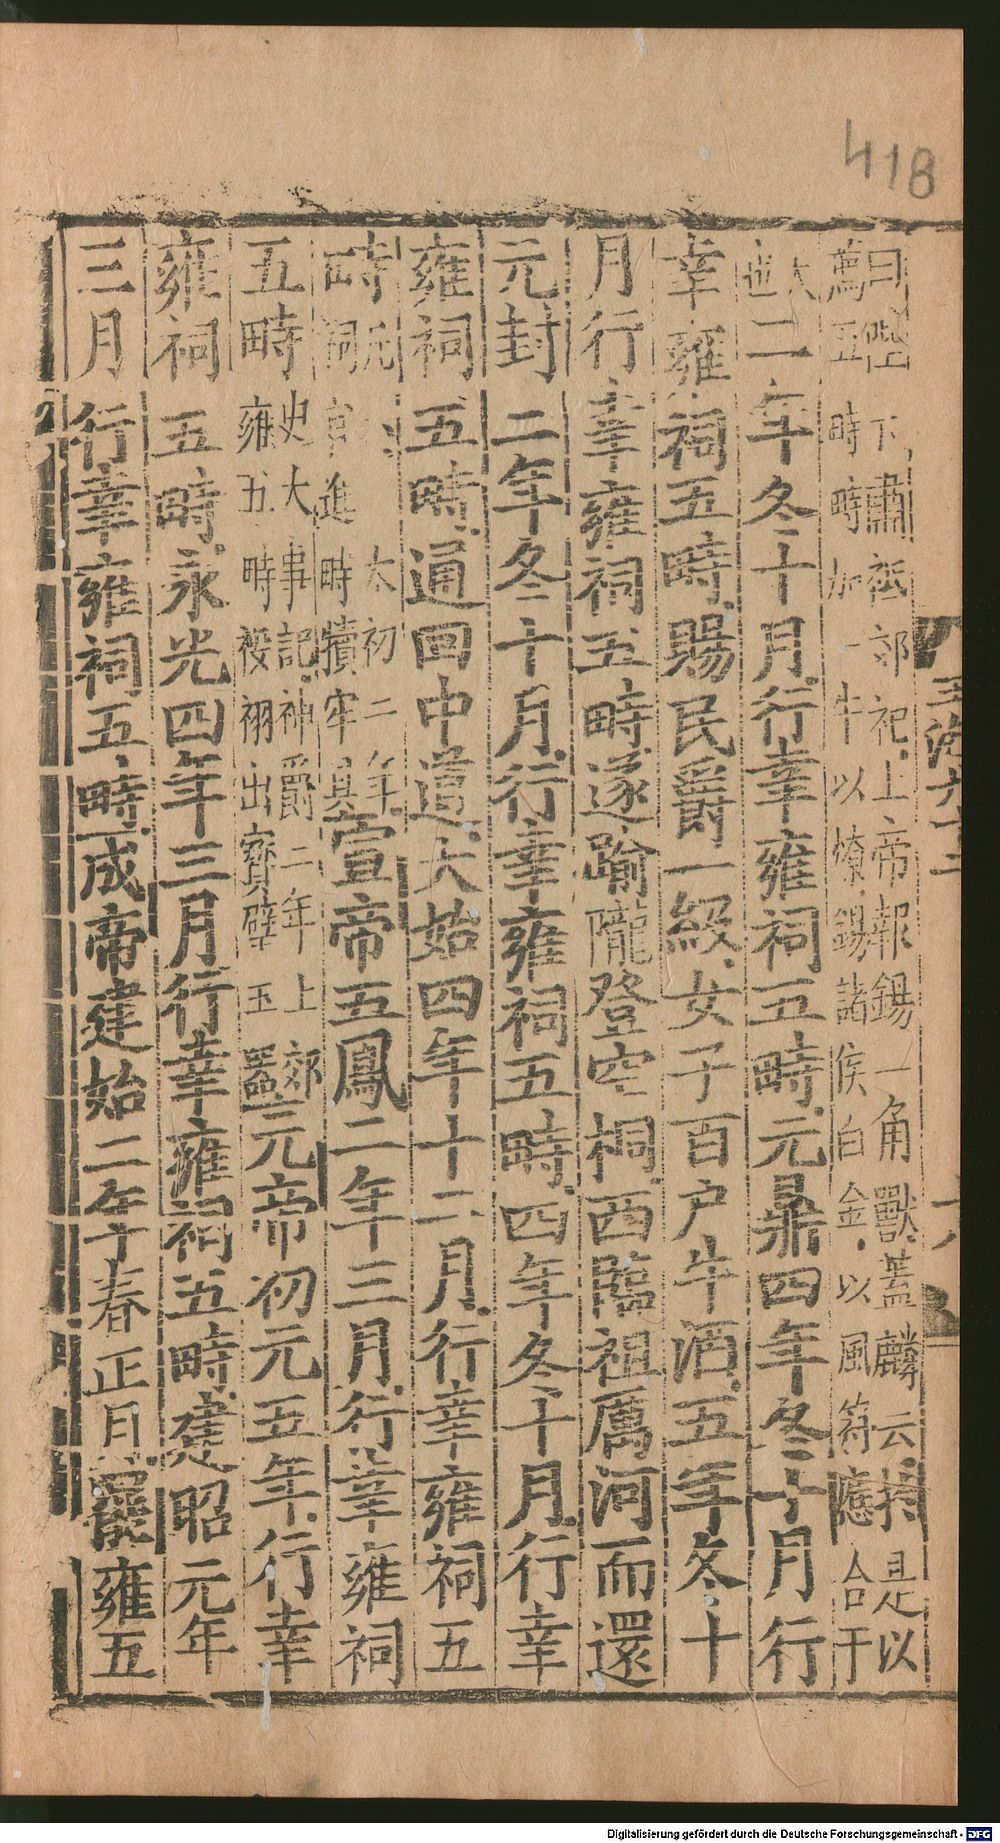 418
曰陛下肅祗郊祀上帝報錫一角獸蓋麟云於是以
薦五畤畤加一牛以燎錫諸侯白金以風符應合于
天
也二年冬十月行幸雍祠五畤元鼎四年冬十月行
幸雍祠五畤賜民爵一級女子百户牛酒五年冬十
月行幸雍祠五畤遂踰隴登空桐西臨祖厲河而還
元封二年冬十月行幸雍祠五畤四年冬十月行幸
雍祠五畤通回中道大始四年十二月行幸雍祠五
畤祠官進畤犢牢具太初二年宣帝五鳳二年三月行幸雍祠
五畤史大事記神爵二年上郊雍五畤祋祤出寳璧玉器元帝初元五年行幸
雍祠五畤永光四年三月行幸雍祠五畤建昭元年
三月行幸雍祠五畤成帝建始二年春正月罷雍五
玉海九十二
Digitalisierung gefördert durch die Deutsche Forschungsgemeinschaft - DFG